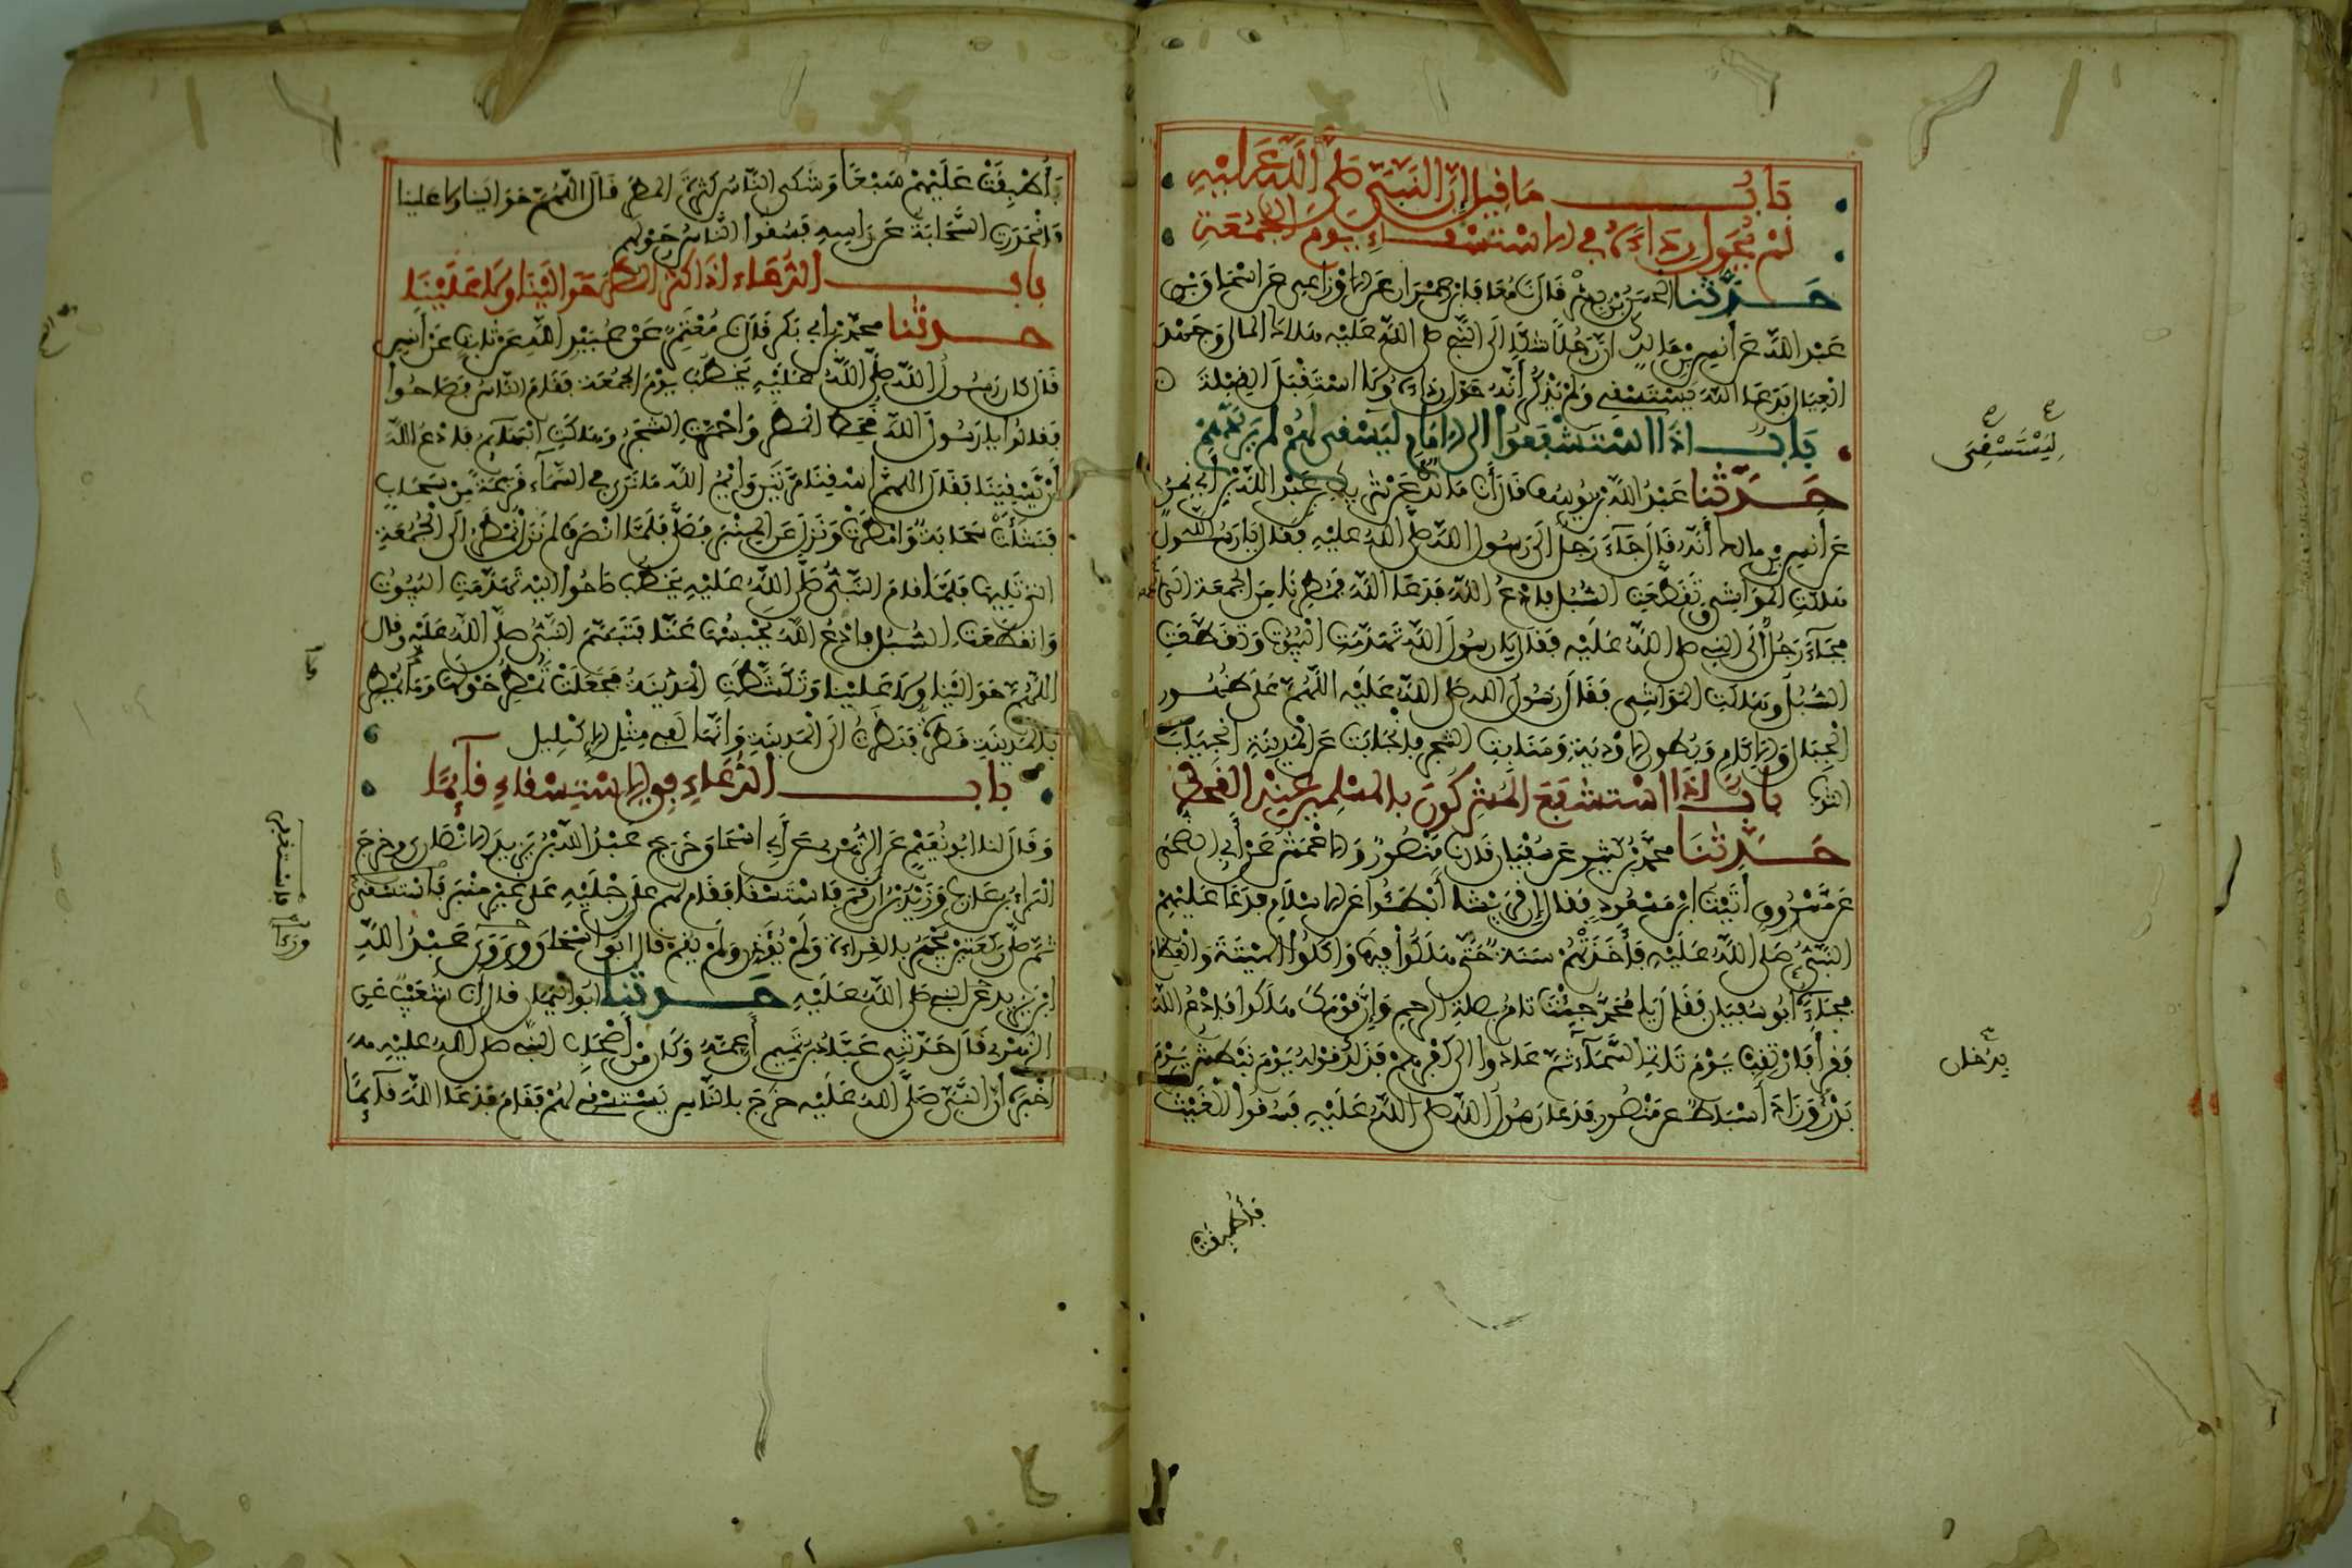 بَابُ مَا قِيلَ إِنَّ النَّبِيَّ صَلَّى اللَّهُ عَلَيْهِ
لَمْ يُحَوِّلْ رِدَاءَهُ فِي الِاسْتِسْقَاءِ يَوْمَ الْجُمُعَةِ
حَدَّثَنَا الْحَسَنُ بْنُ بِشْرٍ قَالَ نَا مُعَافَى بْنُ عِمْرَانَ عَنِ الْأَوْزَاعِي عَنْ إِسْحَاقَ بْنِ
عَبْدِ اللَّهِ عَنْ أَنَسِ بْنِ مَالِكٍ أَنَّ رَجُلًا شَكَا إِلَى النَّبِيِّ صلى اللَّهُ عَلَيْهِ هَلَاكَ الْمَالِ وَجَهْدَ
الْعِيَالِ فَدَعَا اللَّهَ يَسْتَسْقِي وَلَمْ يَذْكُرْ أَنَّهُ حَوَّلَ رِدَاءَهُ وَلَا اسْتَقْبَلَ الْقِبْلَةَ
بَابُ إِذَا اسْتَشْفَعُوا إِلَى الْإِمَامِ لِيَسْتَسْقِي لَهُمْ لَمْ يَرُدَّهُمْ
حَدَّثَنَا عَبْدُ اللَّهِ بْنُ يُوسُفَ قَالَ أَنَا مَالِكٌ عَنْ شَرِيكِ بْنِ عَبْدِ اللَّهِ بْنِ أَبِي نَمِرٍ
عَنْ أَنَسِ بْنِ مالك أَنَّهُ قَالَ جَاءَ رَجُلٌ إِلَى رَسُولِ اللَّهِ صَلَّى اللَّهُ عَلَيْهِ فَقَالَ يَا رَسُولَ اللَّهِ
هَلَكَتِ الْمَوَاشِي وَتَقَطَّعَتِ السُّبُلُ فَادْعُ اللَّهَ فَدَعَا اللَّهَ فَمُطِرْنَا مِنَ الْجُمُعَةِ إِلَى الجمعة
فَجَاءَ رَجُلٌ إِلَى النبي صلى اللَّهُ عَلَيْهِ فَقَالَ يَا رَسُولَ اللَّهِ تَهَدَّمَتِ الْبُيُوتُ وَتَقَطَّعَتِ
السُّبُلُ وَهَلَكَتِ الْمَوَاشِي فَقَالَ رَسُولُ الله صَلى اللَّهُ عَلَيْهِ اللَّهُمَّ عَلَى ظُهُورِ
الْجِبَالِ وَالْآكَامِ وَبُطُونِ الْأَوْدِيَةِ وَمَنَابِتِ الشَّجَرِ فَانْجَابَتْ عَنِ الْمَدِينَةِ انْجِيَابَ
الثَّوْبِ بَابُ إِذَا اسْتَشْفَعَ الْمُشْرِكُونَ بِالْمُسْلِمِينَ عِنْدَ الْقَحْطِ
حَدَّثَنَا مُحَمَّدُ بْنُ كَثِيرٍ عَنْ سُفْيَانَ قَالَ نَا مَنْصُورٌ وَالْأَعْمَشُ عَنْ أَبِي الضُّحَى
عَنْ مَسْرُوقٍ أَتَيْتُ ابْنَ مَسْعُودٍ فَقَالَ إِنَّ قُرَيْشًا أَبْطَئُوا عَنِ الْإِسْلَامِ فَدَعَا عَلَيْهِمُ
النَّبِيُّ صَلى اللَّهُ عَلَيْهِ فَأَخَذَتْهُمْ سَنَةٌ حَتَّى هَلَكُوا فِيهَا وَأَكَلُوا الْمَيْتَةَ وَالْعِظَامَ
فَجَاءَهُ أَبُو سُفْيَانَ فَقَالَ يَا مُحَمَّدُ جِئْتَ تَأمُرُ بِصِلَةِ الرحِمِ وَإِنَّ قَوْمَكَ هَلَكُوا فَادْعُ اللَّهَ
فَقَرَأَ فَارْتَقِبْ يَوْمَ تَأتِي السَّمَاءُ ثُمَّ عَادُوا إِلَى كُفْرِهِمْ فَذَلِكَ قَوْلُهُ يَوْمَ نَبْطِشُ يَوْمَ
بَدْرٍ وَزَادَ أَسْبَاطٌ عَنْ مَنْصُورٍ فَدَعَا رَسُولُ اللَّهِ صَلى اللَّهُ عَلَيْهِ فَسُقُوا الْغَيْثَ
فَأُطْبِقَتْ
لِيَسْتَسْقِيَ
يَدْخُلُ
فَأُطْبِقَتْ عَلَيْهِمْ سَبْعًا وَشَكَى النَّاسُ كَثْرَةَ الْمَطَرِ قَالَ اللَّهُمَّ حَوَالَيْنَا وَلَا عَلَيْنَا
فَانْحَدَرَتِ السَّحَابَةُ عَنْ رَأْسِهِ فَسُقُوا النَّاسُ حَوْلَهُمْ
بَابُ الدُّعَاءِ إِذَا كَثُرَ الْمَطَرُ حَوَالَيْنَا وَلَا عَلَيْنَا
حدثنا مُحَمَّدُ بْنُ أَبِي بَكْرٍ قَالَ نَا مُعْتَمِرٌ عَنْ عُبَيْدِ اللَّهِ عَنْ ثَابِتٍ عَنْ أَنَسٍ
قَالَ كَانَ رَسُولُ اللَّهِ صَلَّى اللَّهُ عَلَيْهِ يَخْطُبُ يَوْمَ الْجُمُعَةِ فَقَامَ النَّاسُ فَصَاحُوا
فَقَالُوا يَا رَسُولَ اللَّهِ قَحَطَ الْمَطَرُ وَاحْمَرَّتِ الشَّجَرُ وَهَلَكَتِ الْبَهَائِمُ فَادْعُ اللَّهَ
أَنْ يَسْقِيَنَا فَقَالَ اللَّهُمَّ اسْقِنَا مَرَّتَيْنِ وَايْمُ اللَّهِ مَا نَرَى فِي السَّمَاءِ قَزَعَةً مِنْ سَحَابٍ
فَنَشَأَتْ سَحَابَةٌ وَأَمْطَرَتْ وَنَزَلَ عَنِ الْمِنْبَرِ فَصَلَّى فَلَمَّا انْصَرَفَ لَمْ تَزَلْ تُمْطِرُ إِلَى الْجُمُعَةِ
الَّتِي تَلِيهَا فَلَمَّا قَامَ النَّبِيُّ صَلَّى اللَّهُ عَلَيْهِ يَخْطُبُ صَاحُوا إِلَيْهِ تَهَدَّمَتِ الْبُيُوتُ
وَانْقَطَعَتِ السُّبُلُ فَادْعُ اللَّهَ يَحْبِسُهَا عَنَّا فَتَبَسَّمَ النَّبِيُّ صَلَّى اللَّهُ عَلَيْهِ وَقَالَ
اللَّهُمَّ حَوَالَيْنَا وَلَا عَلَيْنَا وَتَكَشَّطَتِ الْمَدِينَةُ فَجَعَلَتْ تُمْطِرُ حَوْلَهَا وَمَا تُمْطِرُ
بِالْمَدِينَةِ قَطْرَةٌ فَنَظَرْتُ إِلَى الْمَدِينَةِ وَإِنَّهَا لَفِي مِثْلِ الْإِكْلِيلِ
بَابُ الدُّعَاءِ فِي الِاسْتِسْقَاءِ قَائِمًا
وَقَالَ لَنَا أَبُو نُعَيْمٍ عَنْ زُهَيْرٍ عَنْ أَبِي إِسْحَاقَ خَرَجَ عَبْدُ اللَّهِ بْنُ يَزِيدَ الْأَنْصَارِي وَخَرَجَ
الْبَرَاءُ بْنُ عَازِبٍ وَزَيْدُ بْنُ أَرْقَمَ فَاسْتَسْقَى فَقَامَ لَهُمْ عَلَى رِجْلَيْهِ عَلَى غَيْرِ مِنْبَرٍ فَاسْتَسْقَى
ثُمَّ صَلَّى رَكْعَتَيْنِ يَجْهَرُ بِالْقِرَاءَةِ وَلَمْ يُؤَذِّنْ وَلَمْ يُقِمْ قَالَ أَبُو إِسْحَاقَ وَرَوَى عَبْدُ اللَّهِ
ابْنُ يَزِيدَ عَنِ النبي صَلى اللَّهُ عَلَيْهِ حَدَّثَنَا أَبُو الْيَمَانِ قَالَ أَنَا شُعَيْبٌ عَنِ
الزُّهْرِيِّ قَالَ حَدَّثَنِي عَبَّادُ بْنُ تَمِيمٍ أَنَّ عَمَّهُ وَكَانَ مِنْ أَصْحَابِ النَّبِيِّ صلى اللَّهُ عَلَيْهِ
أَخْبَرَهُ أَنَّ النَّبِيَّ صَلَّى اللَّهُ عَلَيْهِ خَرَجَ بِالنَّاسِ يَسْتَسْقِي لَهُمْ فَقَامَ فَدَعَا اللَّهَ قَائِمًا